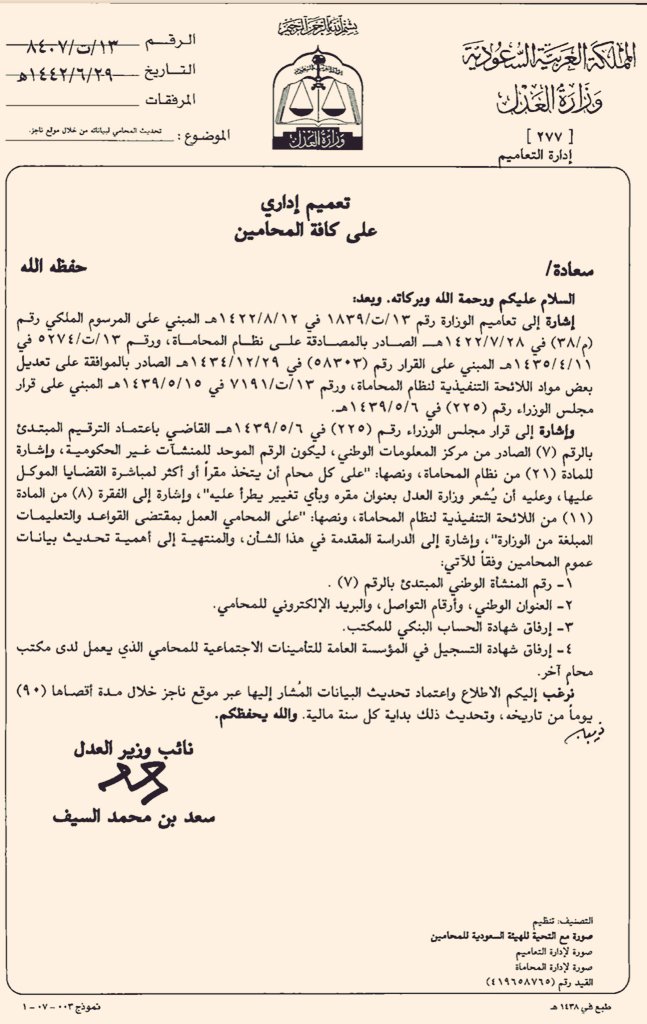 بسم الله الرحمن الرحيم
المملكة العربية السعودية
وزارة العدل
[ ٢٧٧ ]
إدارة التعاميم
وزارة العدل
الرقـــم ١٣/ت/٨٤٠٧
التـاريـخ ١٤٤٢/٦/٢٩هـ
المرفقات
الموضوع : تحديث المحامي لبياناته من خلال موقع ناجز.
تعميم إداري
على كافة المحامين
سعادة/ حفظه الله
السلام عليكم ورحمة الله وبركاته. وبعد:
إشارة إلى تعاميم الوزارة رقم ١٣/ت/١٨٣٩ في ١٤٢٢/٨/١٢هـ المبني على المرسوم الملكي رقم
(م/٣٨) في ١٤٢٢/٧/٢٨هـــ الصادر بالمصادقة على نظام المحاماة، ورقم ١٣/ت/٥٢٧٤ في
١٤٣٥/٤/١١هـ المبني على القرار رقم (٥٨٣٠٣) في ١٤٣٤/١٢/٢٩هـ الصادر بالموافقة على تعديل
بعض مواد اللائحة التنفيذية لنظام المحاماة، ورقم ١٣/ت/٧١٩١ في ١٤٣٩/٥/١٥هـ المبني على قرار
مجلس الوزراء رقم (٢٢٥) في ١٤٣٩/٥/٦هـ.
وإشارة إلى قرار مجلس الوزراء رقـم (٢٢٥) في ١٤٣٩/٥/٦هــ القاضي باعتماد الترقيم المبتدئ
بالرقم (٧) الصادر من مركز المعلومات الوطني، ليكون الرقم الموحد للمنشآت غير الحكومية، وإشارة
للمادة (٢١) من نظام المحاماة، ونصها: "على كل محام أن يتخذ مقراً أو أكثر لمباشرة القضايا الموكل
عليها، وعليه أن يُشعر وزارة العدل بعنوان مقره وبأي تغيير يطرأ عليه"، وإشارة إلى الفقرة (٨) من المادة
(١١) من اللائحة التنفيذية لنظام المحاماة، ونصها: "على المحامي العمل بمقتضى القواعد والتعليمات
المبلغة من الوزارة"، وإشارة إلى الدراسة المقدمة في هذا الشأن، والمنتهية إلى أهمية تحديث بيانات
عموم المحامين وفقاً للآتي:
١- رقم المنشأة الوطني المبتدئ بالرقم (٧) .
٢- العنوان الوطني، وأرقام التواصل، والبريد الإلكتروني للمحامي.
٣- إرفاق شهادة الحساب البنكي للمكتب.
٤- إرفاق شهادة التسجيل في المؤسسة العامة للتأمينات الاجتماعية للمحامي الذي يعمل لدى مكتب
محام آخر.
نرغب إليكم الاطلاع واعتماد تحديث البيانات المُشار إليها عبر موقع ناجز خلال مدة أقصاها (٩٠)
يوماً من تاريخه، وتحديث ذلك بداية كل سنة مالية. والله يحفظكم.
نائب وزير العدل
سعد بن محمد السيف
التصنيف: تنظيم
صورة مع التحية للهيئة السعودية للمحامين
صورة لإدارة التعاميم
صورة لإدارة المحاماة
القيد رقم (٤١٩٦٥٨٧٦٥)
طبع في ١٤٣٨ هـ
نموذج ٠٠٣ - ٠٧ - ١